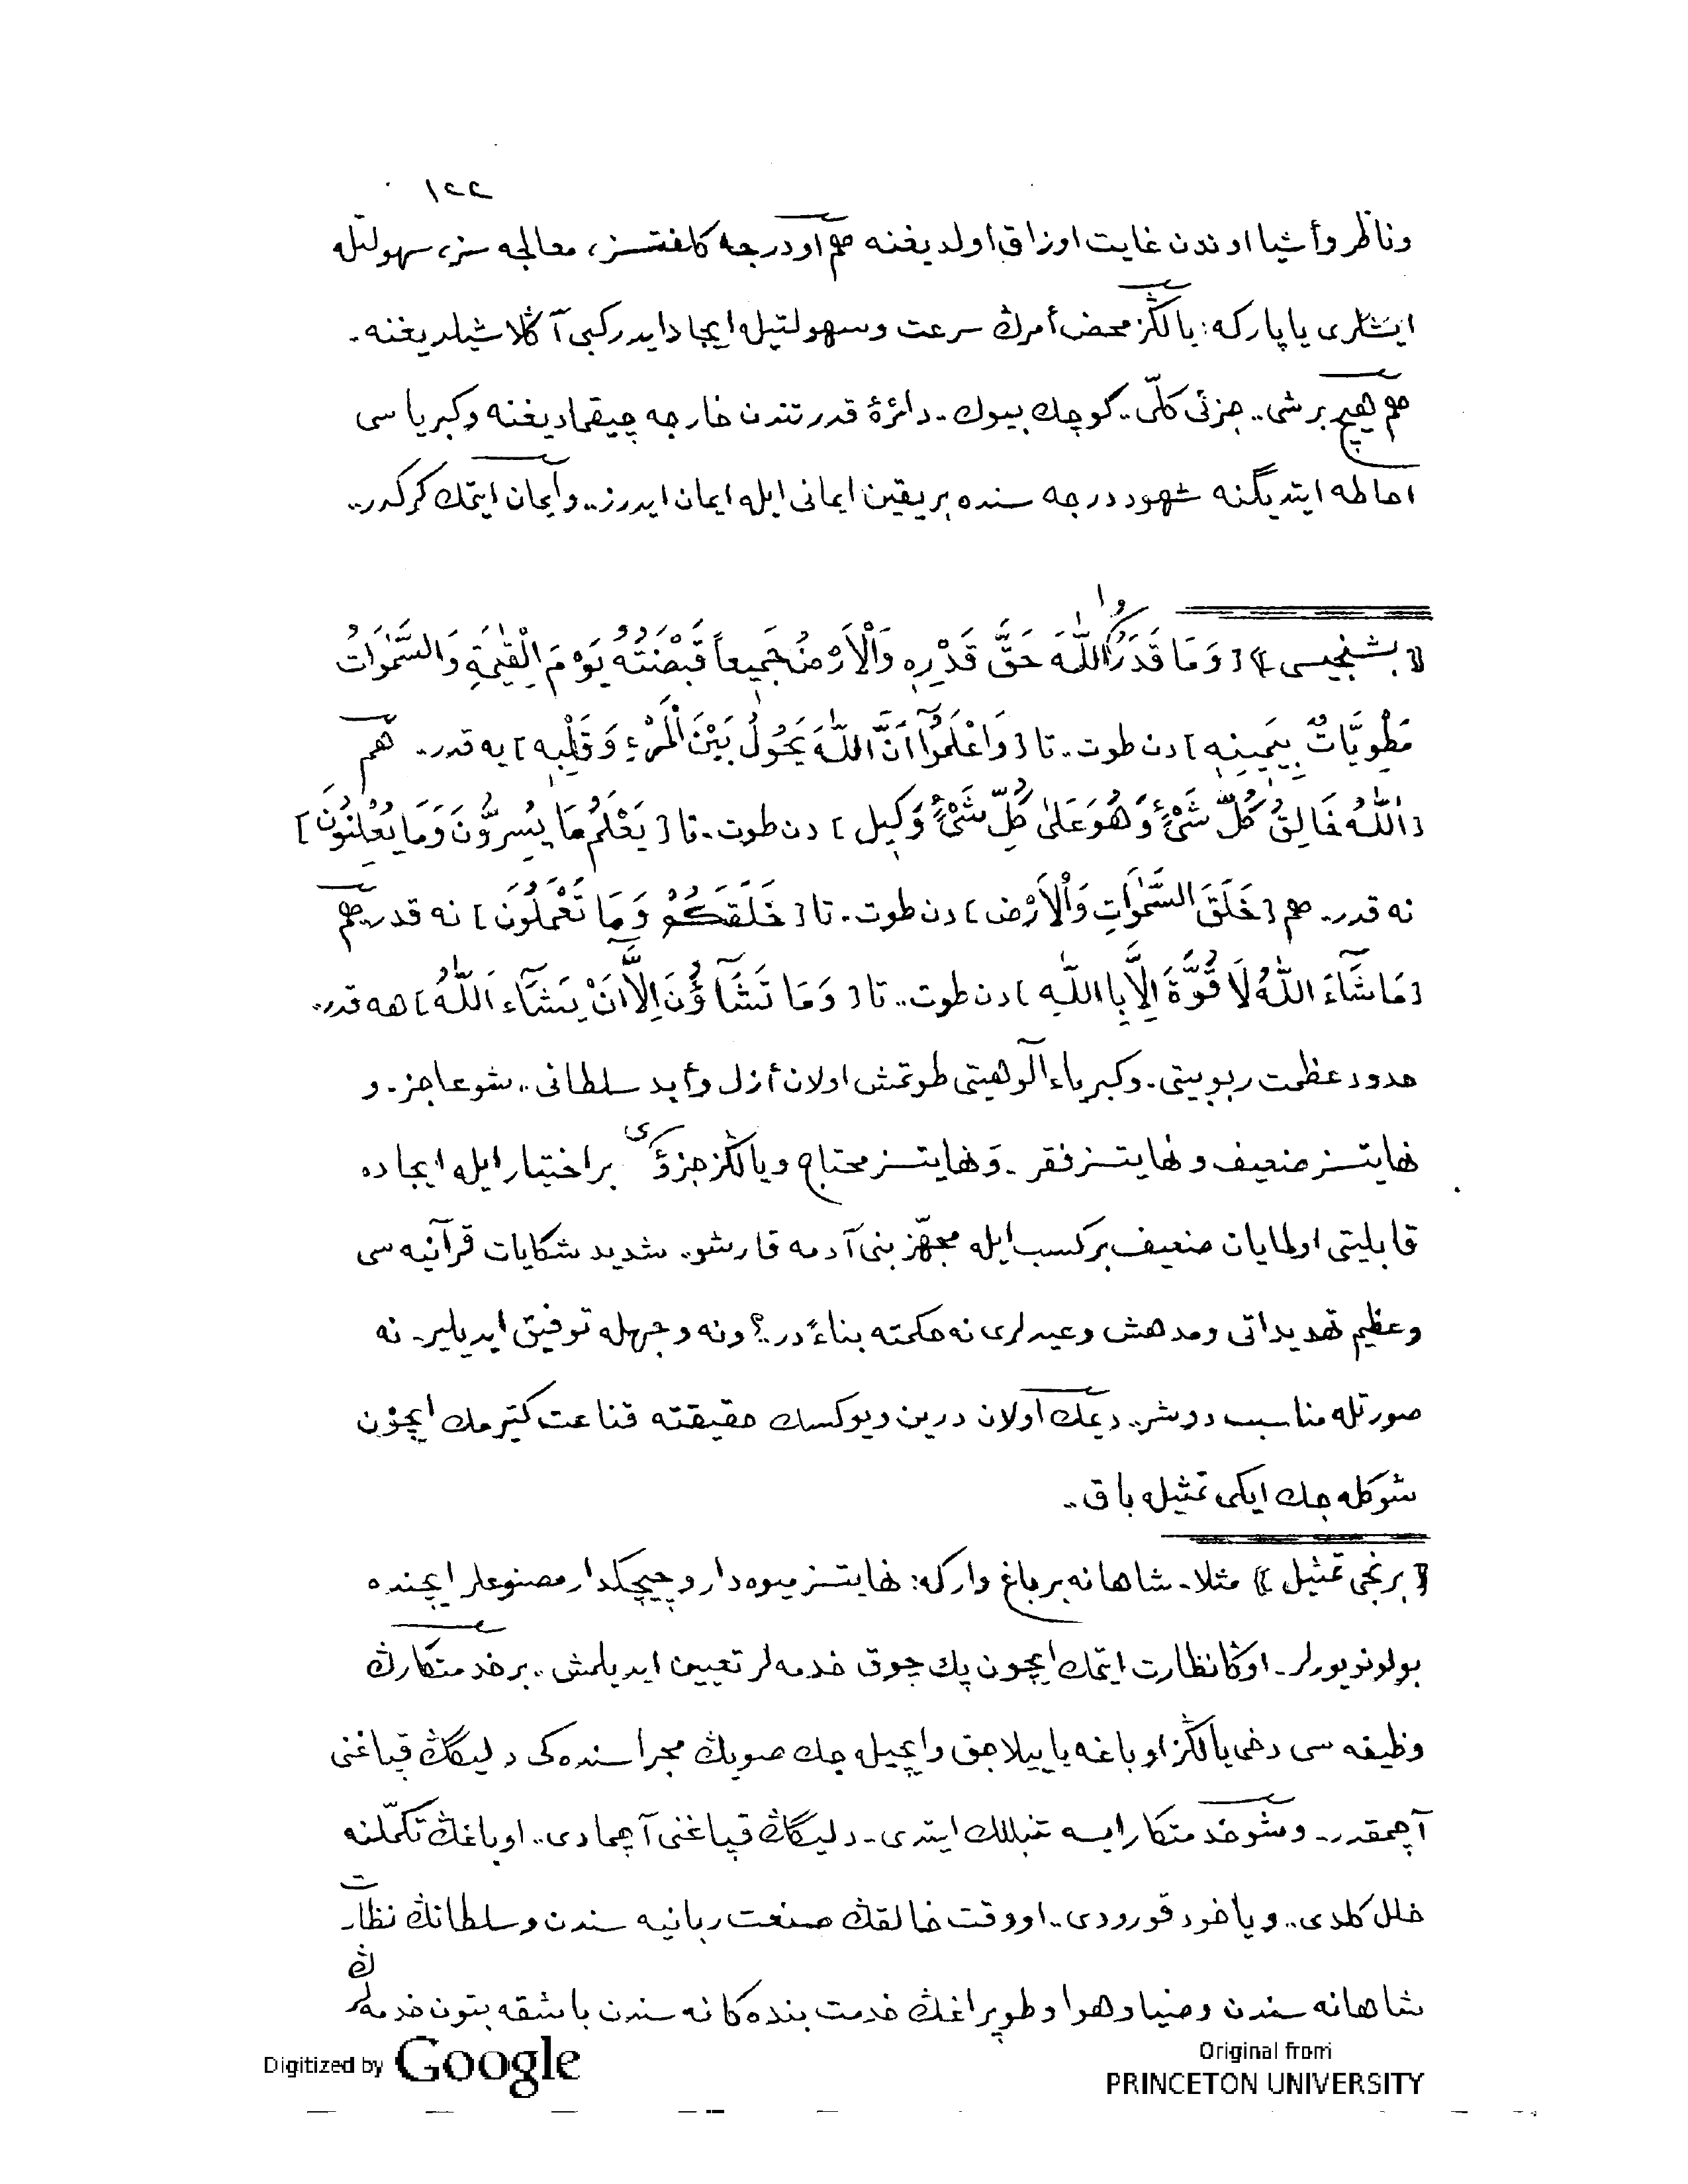 ١٢٢
وناظر وأشيا اوندن غايت اوزاق اولديغنه هم او درجه كلفتسز، معالجه سز، سهولتله
ايشلرى ياپاركه: يالڭز محض أمرڭ سرعت وسهولتيله ايجاد ايدر كبى آڭلاشيلديغنه.
هم هيچ بر شى.. جزئى كلّى.. كوچك بيوك.. دائرۀ قدرتندن خارجه چيقماديغنه وكبرياسى
احاطه ايتديگنه شهود درجه سنده بر يقين ايمانى ايله ايمان ايدرز.. وايمان ايتمك كركدر..
⟦بشنجيسى⟧ [وَمَا قَدَرُوا اللّٰهَ حَقَّ قَدْرِهِ وَالْاَرْضُ جَمِيعاً قَبْضَتُهُ يَوْمَ الْقِيٰمَةِ وَالسَّمٰوَاتُ
مَطْوِيَّاتٌ بِيَمِينِهِ] دن طوت.. تا [وَاعْلَمُٓوا اَنَّ اللّٰهَ يَحُولُ بَيْنَ الْمَرْءِ وَقَلْبِهِ] يه قدر.. هم
[اَللّٰهُ خَالِقُ كُلِّ شَىْءٍ وَهُوَ عَلٰى كُلِّ شَىْءٍ وَكِيل] دن طوت.. تا [يَعْلَمُ مَا يُسِرُّونَ وَمَا يُعْلِنُونَ]
نه قدر.. هم [خَلَقَ السَّمٰوَاتِ وَالْاَرْض] دن طوت.. تا [خَلَقَكُمْ وَمَا تَعْمَلُونَ] نه قدر.. هم
[مَا شَٓاءَ اللّٰهُ لَا قُوَّةَ اِلَّا بِااللّٰهِ] دن طوت.. تا [وَمَا تَشَٓاؤُنَ اِلَّٓا اَنْ يَشَٓاءَ اللّٰهُ] هه قدر..
حدود عظمت ربوبيتى.. وكبرياء الوهيتى طوتمش اولان أزل وأبد سلطانى.. شو عاجز.. و
نهايتسز ضعيف ونهايتسز فقر.. ونهايتسز محتاج ويالڭز جزؤى بر اختيار ايله ايجاده
قابليتى اولمايان ضعيف بر كسب ايله مجهّز بنى آدمه قارشو.. شديد شكايات قرآنيه سى
وعظيم تهديداتى ومدهش وعيدلرى نه حكمته بناءً در؟ ونه وجهله توفيق ايديلير.. نه
صورتله مناسب دوشر.. ديمك اولان درين ويوكسك حقيقته قناعت كتيرمك ايچون
شو كله جك ايكى تمثيله باق..
⟦برنجى تمثيل⟧ مثلا.. شاهانه بر باغ واركه: نهايتسز ميوه دار وچيچكدار مصنوعلر ايچنده
بولونويورلر.. اوڭا نظارت ايتمك ايچون پك چوق خدمه لر تعيين ايديلمش.. بر خدمتكارڭ
وظيفه سى دخى يالڭز او باغه ياييلاجق وايچيله جك صويڭ مجراسنده كى دليگڭ قپاغنى
آچمقدر.. وشو خدمتكار ايسه تنبللك ايتدى.. دليگڭ قپاغنى آچمادى.. او باغڭ تكمّلنه
خلل كلدى.. وياخود قورودى.. او وقت خالقڭ صنعت ربانيه سندن وسلطانڭ نظارت
شاهانه سندن وضيا وهوا وطوپراغڭ خدمت بنده كانه سندن باشقه بتون خدمه لرڭ
Digitized by Google
Original from
PRINCETON UNIVERSITY